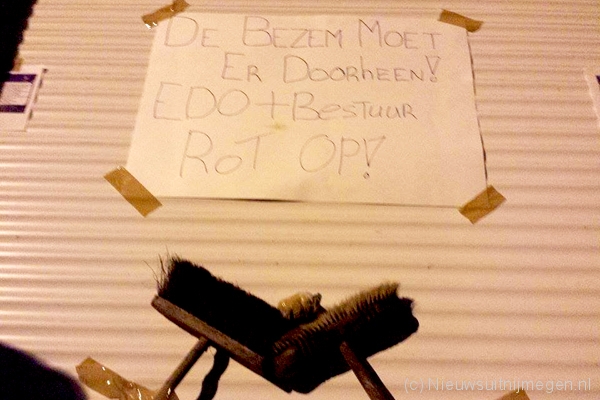 DE BEZEM MOET
ER DOORHEEN!
EDO+BESTUUR
ROT OP!
(c) Nieuwsuitnijmegen.nl